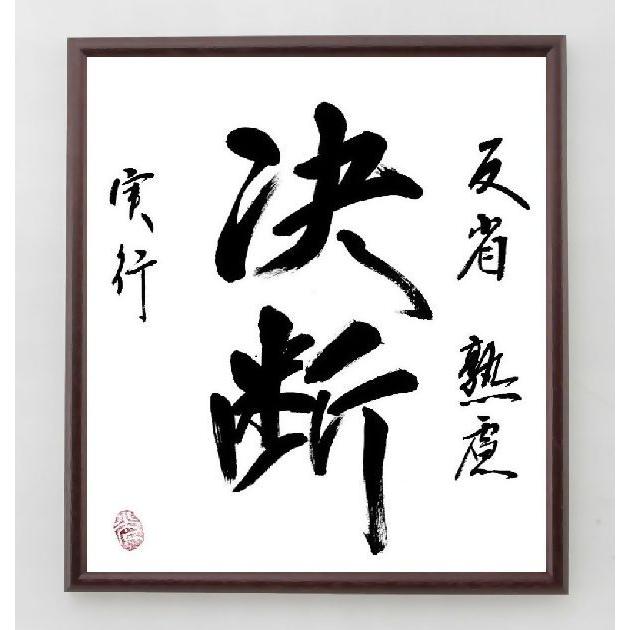 反省 熟慮
決断
実行